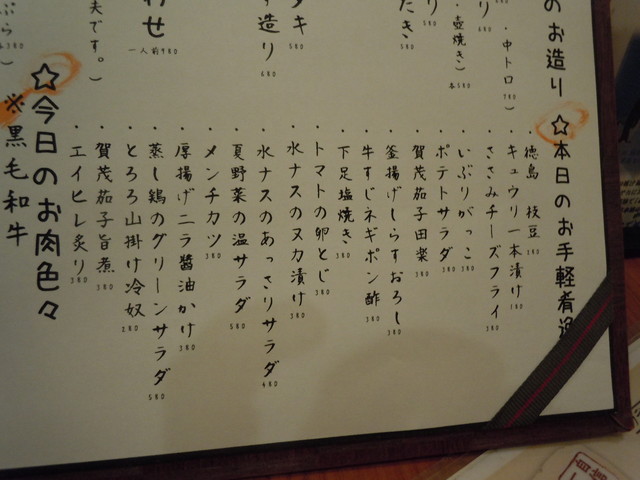 のお造り
・中トロ
り
・壺焼き)
り
たき
タキ
造り
わせ
一人前980
夫です。)
ぷら
☆本日のお手軽肴
・徳島 枝豆 380
・キュウリ一本漬け 180
・ささみチーズフライ 380
・いぶりがっこ 380
・ポテトサラダ 380
・賀茂茄子田楽 380
・釜揚げしらすおろし 380
・牛すじネギポン酢 380
・下足塩焼き 380
・トマトの卵とじ 380
・水ナスのヌカ漬け 380
・水ナスのあっさりサラダ 680
・夏野菜の温サラダ 580
・メンチカツ 380
・厚揚げニラ醤油かけ 380
・蒸し鶏のグリーンサラダ 580
・とろろ山掛け冷奴 280
・賀茂茄子旨煮 380
・エイヒレ炙り 380
☆今日のお肉色々
※黒毛和牛